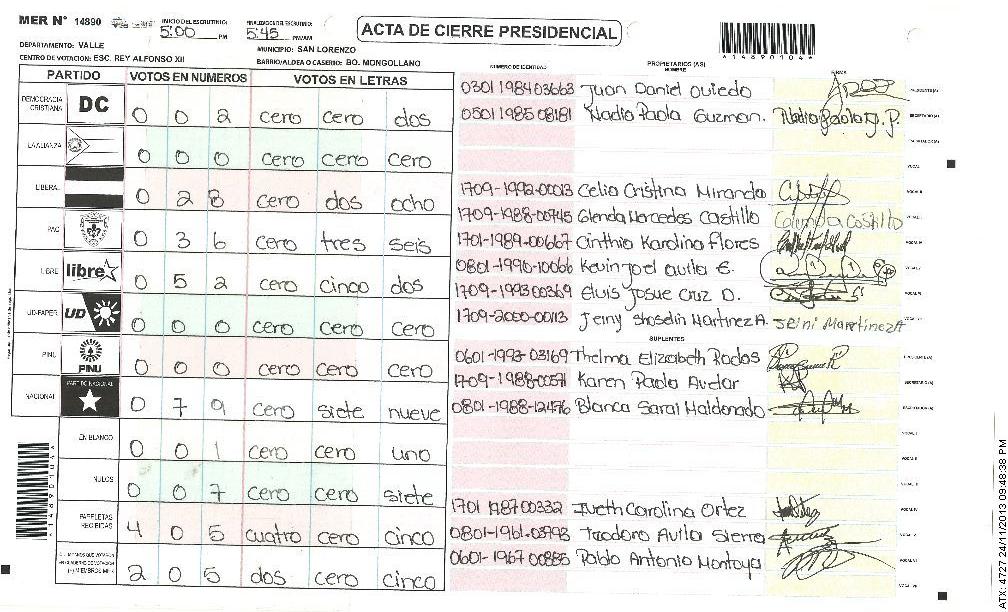 MER N° 14890
INICIO DEL ESCRUTINIO: 5:00 PM
FINALIZACION DEL ESCRUTINIO: 5:45 PM/AM
ACTA DE CIERRE PRESIDENCIAL
*14890104*
DEPARTAMENTO: VALLE
MUNICIPIO: SAN LORENZO
CENTRO DE VOTACION: ESC. REY ALFONSO XII
BARRIO/ALDEA O CASERIO: BO. MONGOLLANO
PARTIDO VOTOS EN NUMEROS VOTOS EN LETRAS
DEMOCRACIA CRISTIANA DC 0 0 2 cero cero dos
LA ALIANZA 0 0 0 cero cero cero
LIBERAL 0 2 8 cero dos ocho
PAC 0 3 6 cero tres seis
LIBRE libre 0 5 2 cero cinco dos
UD-FAPER UD 0 0 0 cero cero cero
PINU PINU 0 0 0 cero cero cero
NACIONAL PARTIDO NACIONAL 0 7 9 cero siete nueve
EN BLANCO 0 0 1 cero cero uno
NULOS 0 0 7 cero cero siete
PAPELETAS RECIBIDAS 4 0 5 cuatro cero cinco
2 0 5 dos cero cinco
NUMERO DE IDENTIDAD PROPIETARIOS (AS) NOMBRE FIRMA
0301 1984 03663 Juan Daniel Oviedo PRESIDENTE(A)
0501 1985 08181 Nadia Paola Guzman. Nadia Paola G. P. SECRETARIO (A)
ESCRUTADOR (A)
VOCAL I
1709-1992-00013 Celia Cristina Miranda VOCAL II
1709-1988-00745 Glenda Mercedes Castillo Glenda Castillo
1701-1989-00667 Cinthia Karolina Flores VOCAL IV
0801-1990-10066 Kevin Joel Avila E.
1709-1993 00369 Eluis Josue Cruz D.
1709-2000-00113 Jeiny Shoselin Martinez A. Jeini Martinez A
SUPLENTES
0601-1993-03169 Thelma Elizabeth Rodas PRESIDENTE(A)
1709-1988-00571 Karen Paola Avelar SECRETARIO (A)
0801-1988-12476 Blanca Sarai Maldonado ESCRUTADOR (A)
VOCAL I
VOCAL II
1701 1987 00332 Iveth Carolina Ortez VOCAL IV
0801-1961-03993 Teodoro Avila Sierra
0601-1967 00885 Pablo Antonio Montoya VOCAL VI
*14890104*
ATX-4727 24/11/2013 09:48:38 PM